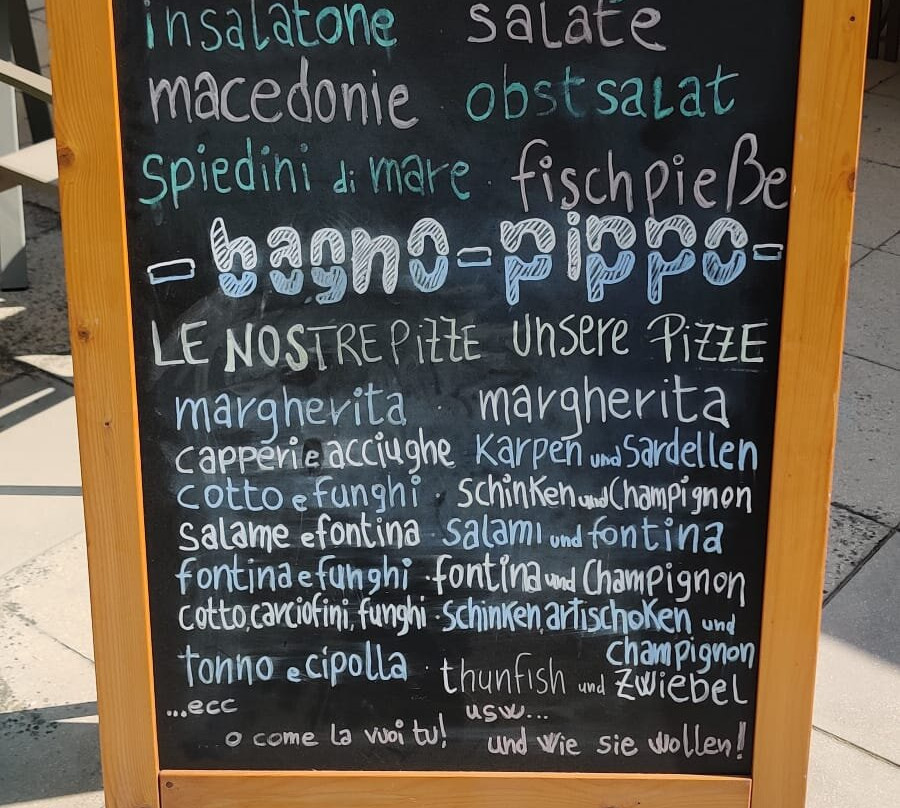 insalatone salate
macedonie obstsalat
spiedini di mare · fischpieße
- bagno - pippo -
LE NOSTRE PiZZE unsere PiZZE
margherita · margherita
capperi e acciughe Karpen und Sardellen
cotto e funghi · schinken und Champignon
salame e fontina · salami und fontina
fontina e funghi · fontina und Champignon
cotto, carciofini, funghi · schinken, artischoken und
champignon
tonno e cipolla · thunfish und zwiebel
...ecc usw...
o come la vuoi tu! und wie sie wollen!